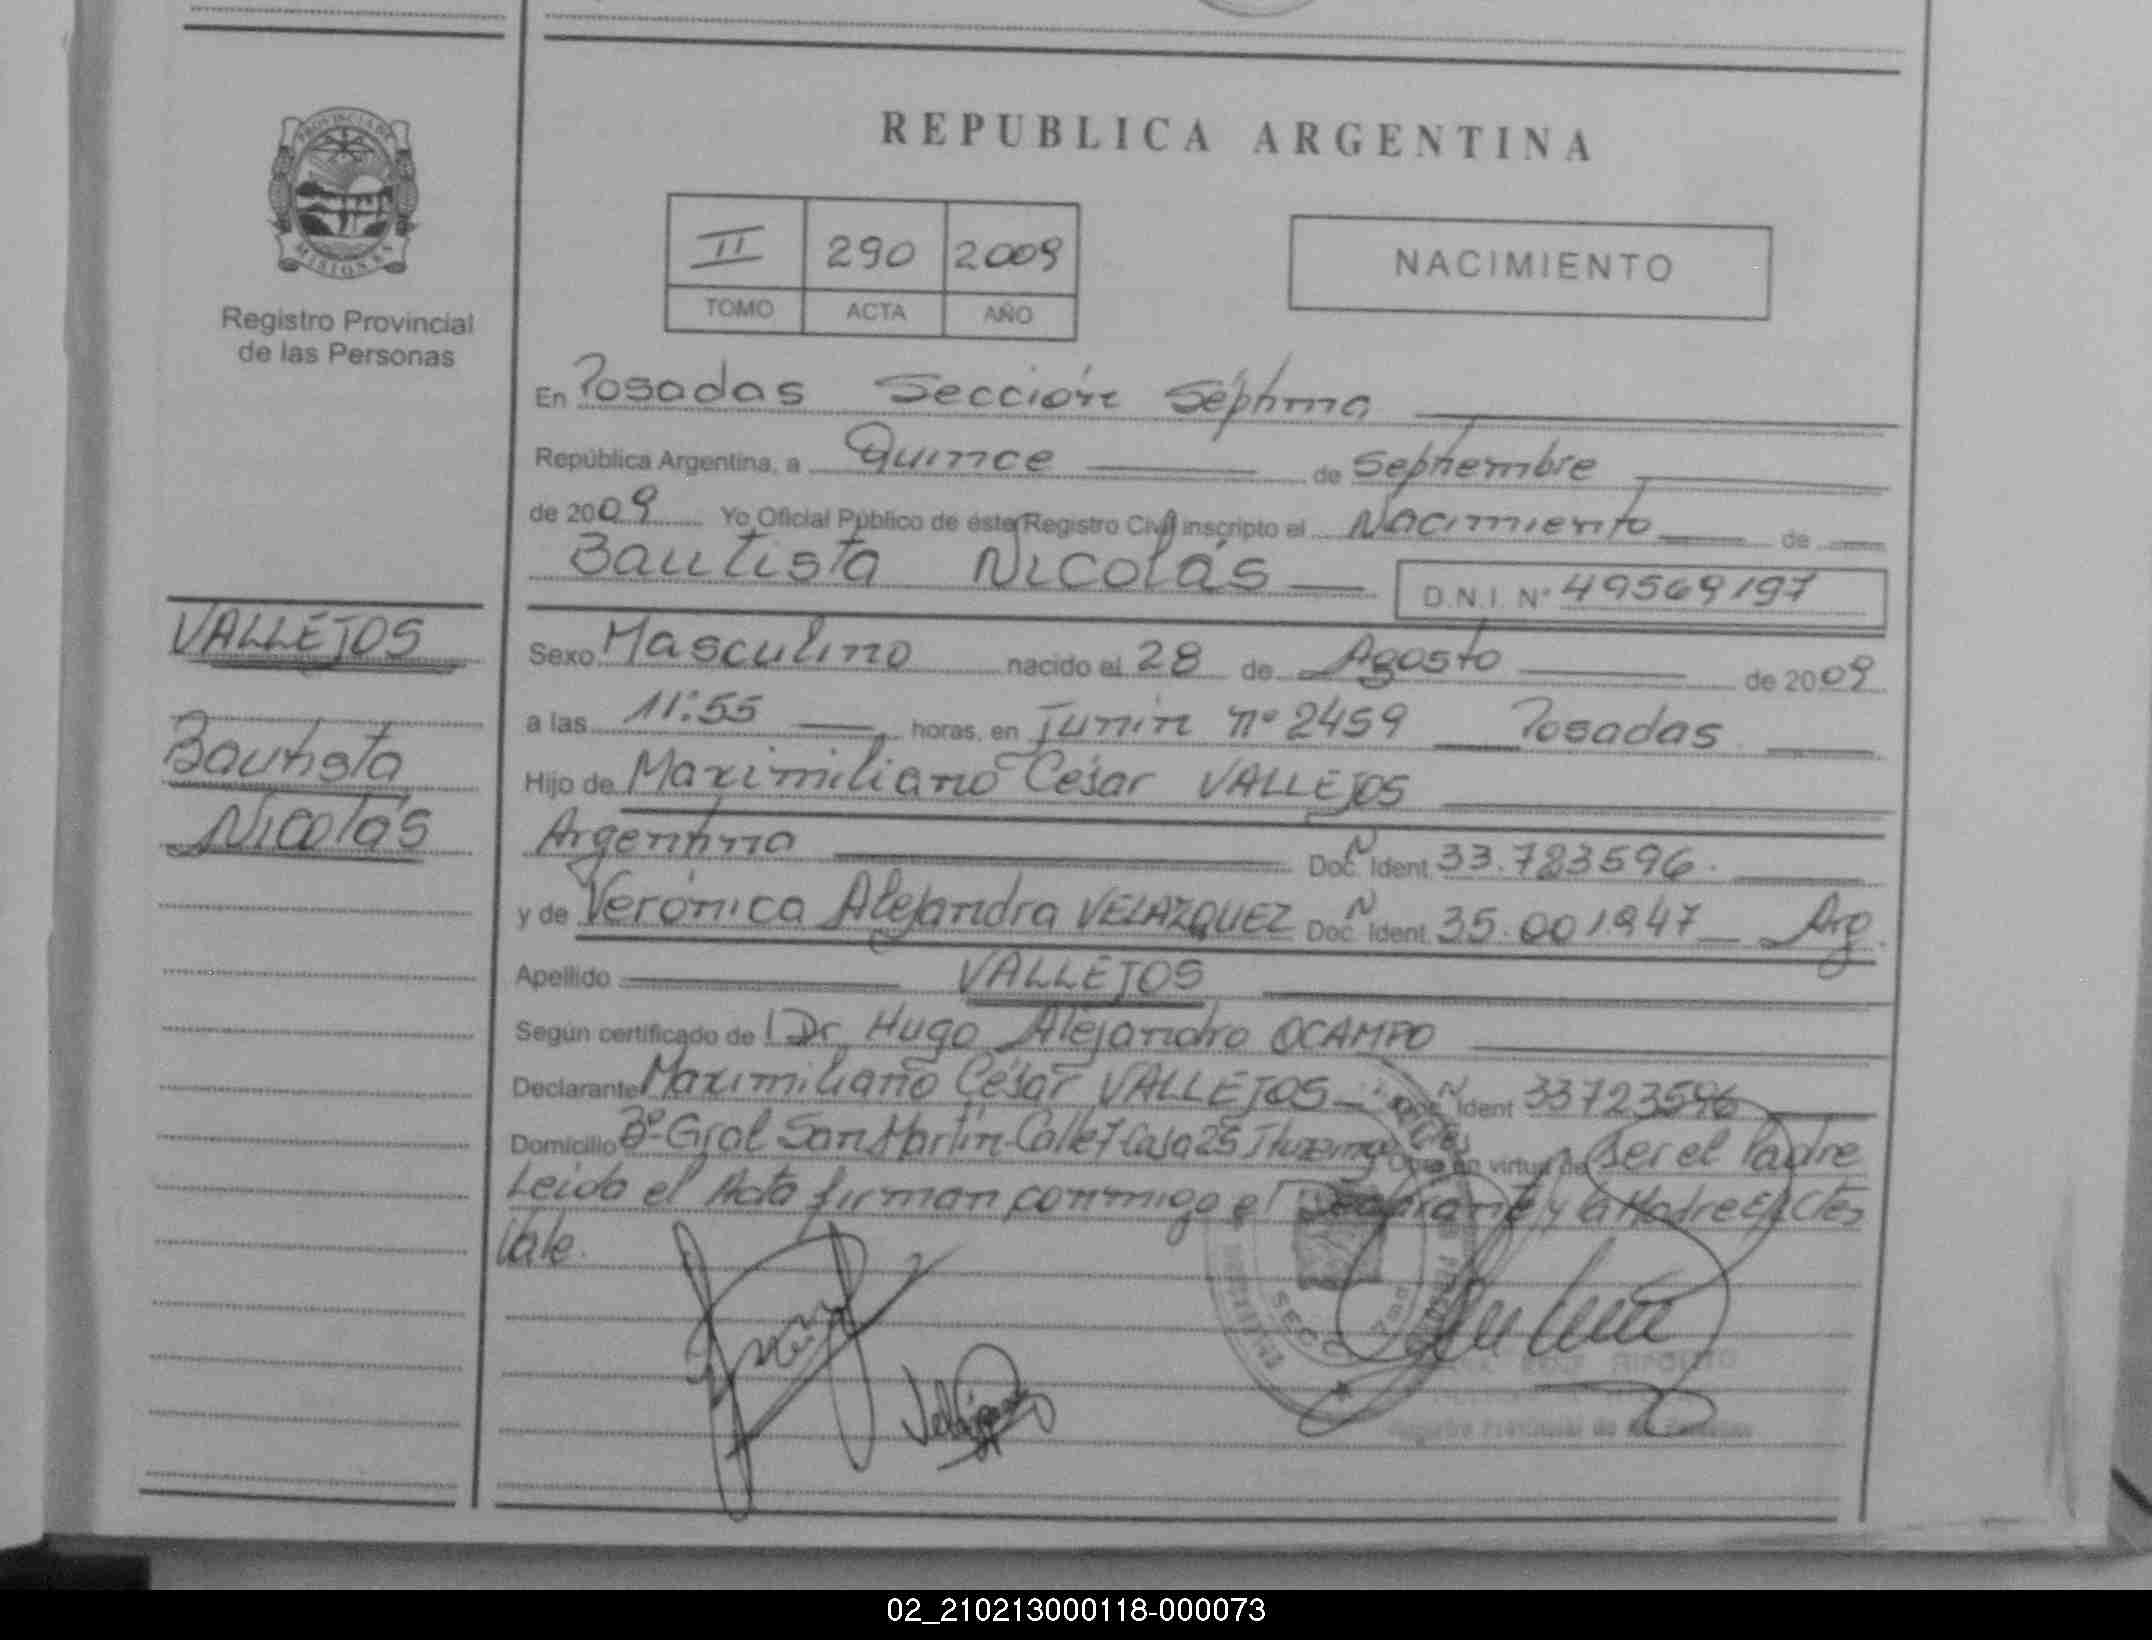 REPUBLICA ARGENTINA
PROVINCIA DE
MISIONES
Registro Provincial
de las Personas
II 290 2009
TOMO ACTA AÑO
NACIMIENTO
En Posadas Sección Séptima
República Argentina, a Quince de Septiembre
de 2009 Yo Oficial Público de éste Registro Civil inscripto el Nacimiento de
Bautista Nicolás D.N.I. Nº 49569197
VALLEJOS
Bautista
Nicolás
Sexo Masculino nacido el 28 de Agosto de 2009
a las 11:55 horas, en Junín nº 2459 Posadas
Hijo de Maximiliano César VALLEJOS
Argentina Doc. N Ident. 33.723596.
y de Verónica Alejandra VELAZQUEZ Doc. N Ident. 35.001947 Arg.
Apellido VALLEJOS
Según certificado de Dr. Hugo Alejandro OCAMPO
Declarante Maximiliano César VALLEJOS Doc. N Ident 33723596
Domicilio Bº Gral San Martín Calle 7 Casa 25 Obra en virtud de Ser el Padre
Leída el Acta firman conmigo el Declarante y la Madre
Vale.
Registro Provincial de las Personas
02_210213000118-000073